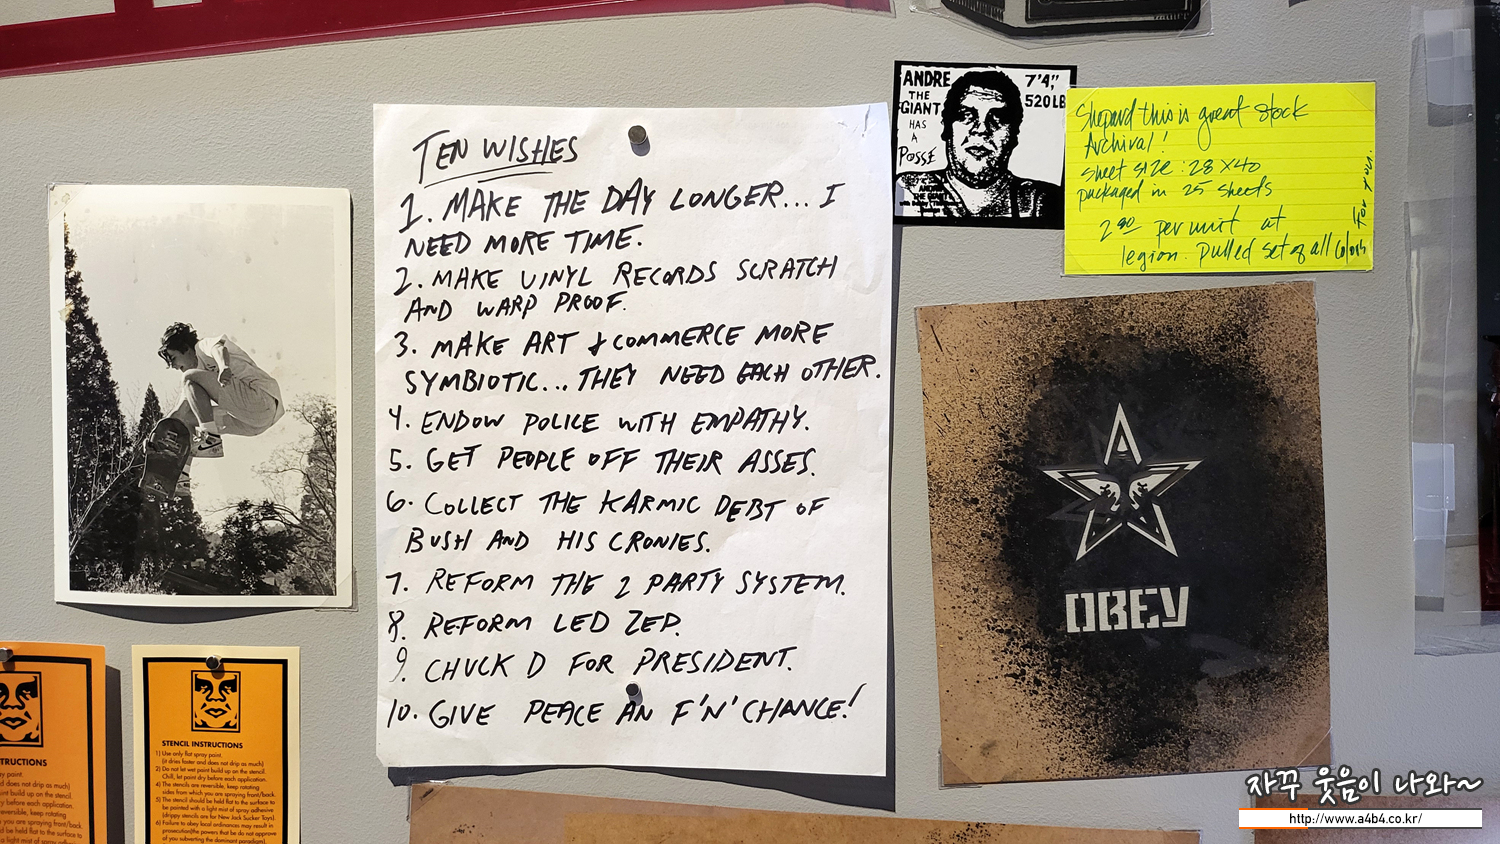 TEN WISHES
1. MAKE THE DAY LONGER... I
NEED MORE TIME.
2. MAKE VINYL RECORDS SCRATCH
AND WARP PROOF.
3. MAKE ART & COMMERCE MORE
SYMBIOTIC... THEY NEED EACH OTHER.
4. ENDOW POLICE WITH EMPATHY.
5. GET PEOPLE OFF THEIR ASSES.
6. COLLECT THE KARMIC DEBT OF
BUSH AND HIS CRONIES.
7. REFORM THE 2 PARTY SYSTEM.
8. REFORM LED ZEP.
9. CHUCK D FOR PRESIDENT.
10. GIVE PEACE AN F'N' CHANCE!
ANDRE
THE
GIANT
HAS
A
POSSE
7'4",
520 LB
Shepard this is great stock
Archival!
sheet size: 28 x 40
packaged in 25 sheets
per unit at
legion. pulled set of all colors
for you.
OBEY
TRUCTIONS
y paint.
d does not drip as much)
int build up on the stencil.
ry before each application.
reversible, keep rotating
you are spraying front/back.
d be held flat to the surface to
STENCIL INSTRUCTIONS
1) Use only flat spray paint.
(it dries faster and does not drip as much)
2) Do not let wet paint build up on the stencil.
Chill, let paint dry before each application.
4) The stencils are reversible, keep rotating
sides from which you are spraying front/back.
5) The stencil should be held flat to the surface to
be painted with a light mist of spray adhesive
(drippy stencils are for New Jack Sucker Toys).
6) Failure to obey local ordinances may result in
prosecution(the powers that be do not approve
of you subverting the dominant paradigm).
자꾸 웃음이 나와~
http://www.a4b4.co.kr/